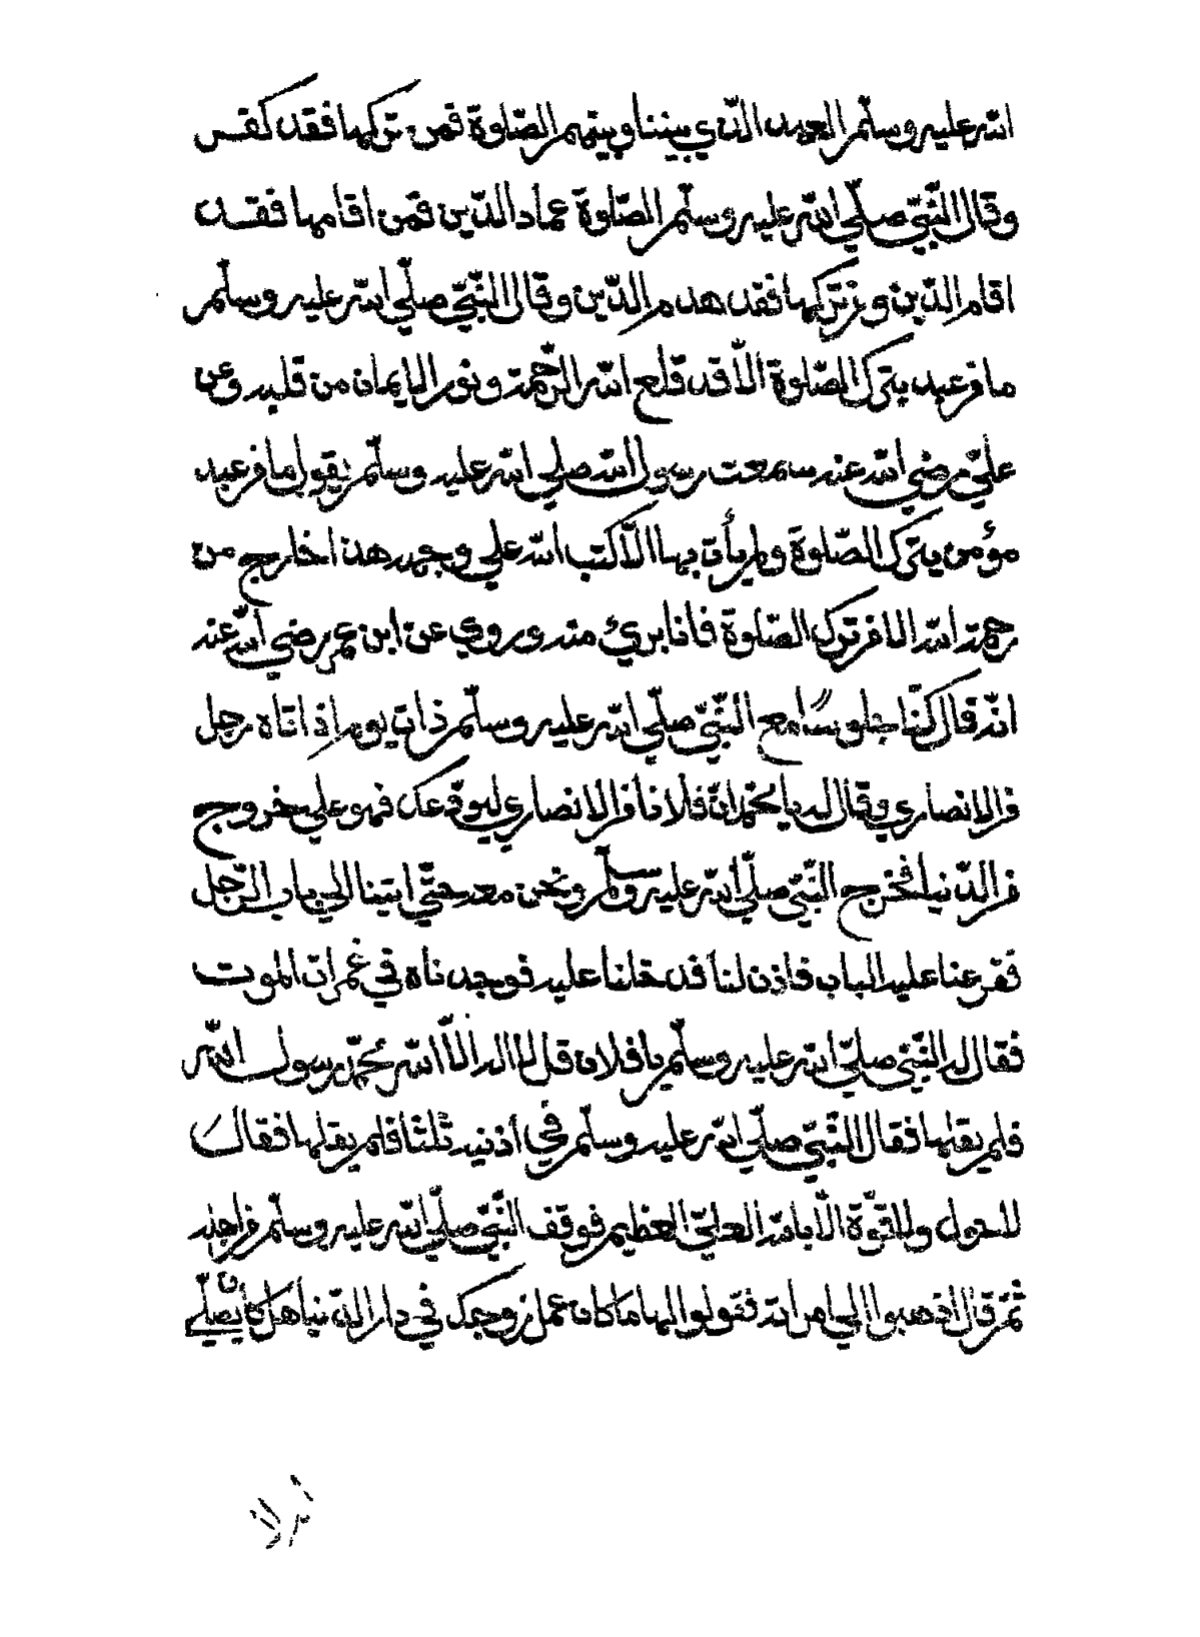 الله عليه وسلّم العهد الّذي بيننا وبينهم الصّلوة فمن تركها فقد كفر
وقال النّبيّ صلّي الله عليه وسلّم الصّلوة عماد الدّين فمن اقامها فقد
اقام الدّين ومن تركها فقد هدم الدّين وقال النّبيّ صلّي الله عليه وسلّم
ما من عبد يترك الصّلوة الّا قد قلع الله الرّحمة ونور الايمان من قلبه وعن
عليّ رضي الله عنه سمعت رسول الله صلي الله عليه وسلّم يقول ما من عبد
مؤمن يترك الصّلوة ولم يأت بها الّا كتب الله علي وجهه هذا خارج من
رحمة الله الا من ترك الصّلوة فانا بريء منه وروي عن ابن عمر رضي الله عنه
انّه قال كنّا جلوسًا مع النّبيّ صلّي الله عليه وسلّم ذات يوم اذ اتاه رجل
من الانصاري وقال له يا محمّد انّ فلانا من الانصاري ليودّعك فهو علي خروج
من الدّنيا فخرج النّبيّ صلّي الله عليه وسلّم ونحن معه حتّي اتينا الي باب الرّجل
فقرعنا عليه الباب فاذن لنا فدخلنا عليه فوجدناه في غمرات الموت
فقال له النّبيّ صلّي الله عليه وسلّم يا فلان قل لا اله الّا الله محمّد رسول الله
فلم يقلها فقال النّبيّ صلّي الله عليه وسلّم في أذنيه ثلثا فلم يقلها فقال
لا حول ولا قوّة الّا بالله العليّ العظيم فوقف النّبيّ صلّي الله عليه وسلّم من اجله
ثمّ قال اذهبوا الي امراته فقولوا لها ما كان عمل زوجك في دار الدّنيا هل كان يصلّي